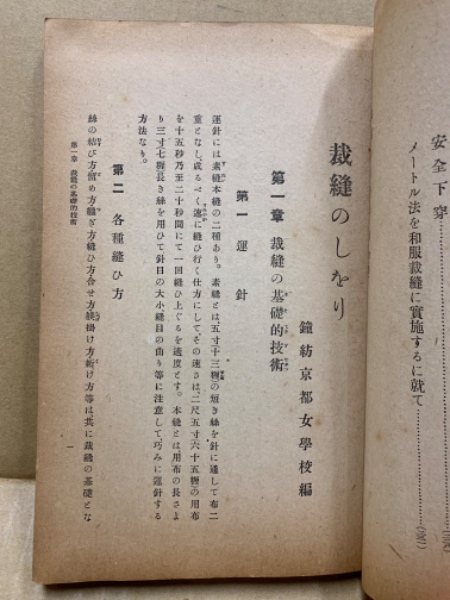 安全下穿
メートル法を和服裁縫に實施するに就て
裁縫のしをり
鐘紡京都女學校編
第一章 裁縫の基礎的技術
第一 運針
運針には素縫本縫の二種あり。素縫とは、五寸(十三糎)の短き絲を針に通して布二
重となし、成るべく速に縫ひ行く仕方にして、その速さは、二尺五寸六十五糎の用布
を十五秒乃至二十秒間にて一回縫ひ上ぐるを適度とす。本縫とは用布の長さよ
り三寸七糎長き絲を用ひて針目の大小縫目の曲り等に注意して、巧みに運針する
方法なり。
第二 各種縫ひ方
絲の結び方留め方繼ぎ方縫ひ方合せ方躾掛け方絎け方等は共に裁縫の基礎とな
第一章 裁縫の基礎的技術
一